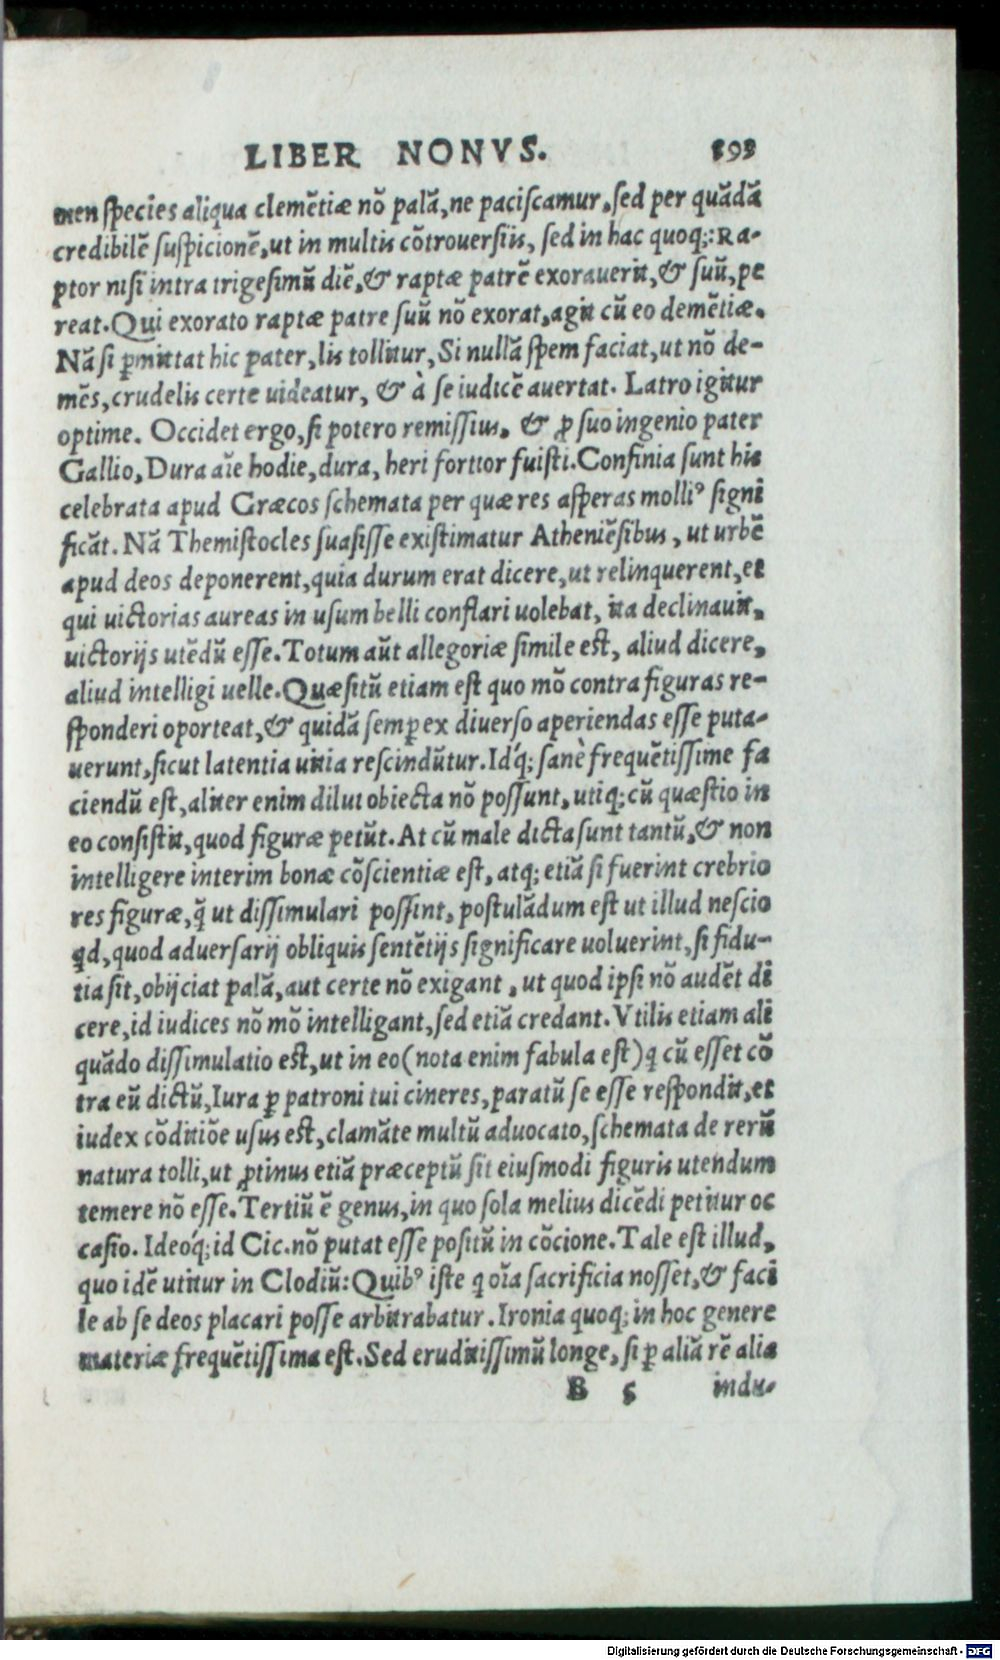 LIBER NONVS. 393
men species aliqua clemẽtiæ nõ palã, ne paciscamur, sed per quãdã
credibilẽ suspicionẽ, ut in multis cõtrouersiis, sed in hac quoq;: RA-
ptor nisi intra trigesimũ diẽ, & raptæ patrẽ exorauerit, & suũ, pe
reat. Qui exorato raptæ patre suũ nõ exorat, agit cũ eo demẽtiæ.
Nã si ꝑmittat hic pater, lis tollitur, Si nullã spem faciat, ut nõ de-
mẽs, crudelis certe uideatur, & à se iudicẽ auertat. Latro igitur
optime. Occidet ergo, si potero remissius. & ꝓ suo ingenio pater
Gallio, Dura aĩe hodie, dura, heri fortior fuisti. Confinia sunt his
celebrata apud Græcos schemata per quæ res asperas molliꝰ signi
ficãt. Nã Themistocles suasisse existimatur Atheniẽsibus, ut urbẽ
apud deos deponerent, quia durum erat dicere, ut relinquerent, et
qui uictorias aureas in usum belli conflari uolebat, ita declinauit,
uictorijs utẽdũ esse. Totum aũt allegoriæ simile est, aliud dicere,
aliud intelligi uelle. Quæsitũ etiam est quo mõ contra figuras re-
sponderi oporteat, & quidã semꝑ ex diuerso aperiendas esse puta-
uerunt, sicut latentia uitia rescindũtur. Idq́; sanè frequẽtissime fa
ciendũ est, aliter enim dilui obiecta nõ possunt, utiq; cũ quæstio in
eo consistit, quod figuræ petũt. At cũ male dicta sunt tantũ, & non
intelligere interim bonæ cõscientiæ est, atq; etiã si fuerint crebrio
res figuræ, q̃ ut dissimulari possint, postulãdum est ut illud nescio
qd, quod aduersarij obliquis sentẽtijs significare uoluerint, si fidu-
tia sit, obijciat palã, aut certe nõ exigant, ut quod ipsi nõ audẽt di
cere, id iudices nõ mõ intelligant, sed etiã credant. Vtilis etiam ali
quãdo dissimulatio est, ut in eo (nota enim fabula est) q cũ esset cõ
tra eũ dictũ, Iura ꝑ patroni tui cineres, paratũ se esse respondit, et
iudex cõditiõe usus est, clamãte multũ aduocato, schemata de rerũ
natura tolli, ut ꝓtinus etiã præceptũ sit eiusmodi figuris utendum
temere nõ esse. Tertiũ ẽ genus, in quo sola melius dicẽdi petitur oc
casio. Ideoq́; id Cic. nõ putat esse positũ in cõcione. Tale est illud,
quo idẽ utitur in Clodiũ: Quibꝰ iste q oĩa sacrificia nosset, & faci
le ab se deos placari posse arbitrabatur. Ironia quoq; in hoc genere
materiæ frequẽtissima est. Sed eruditissimũ longe, si ꝑ aliã rẽ alia
B 5 indu-
Digitalisierung gefördert durch die Deutsche Forschungsgemeinschaft - DFG